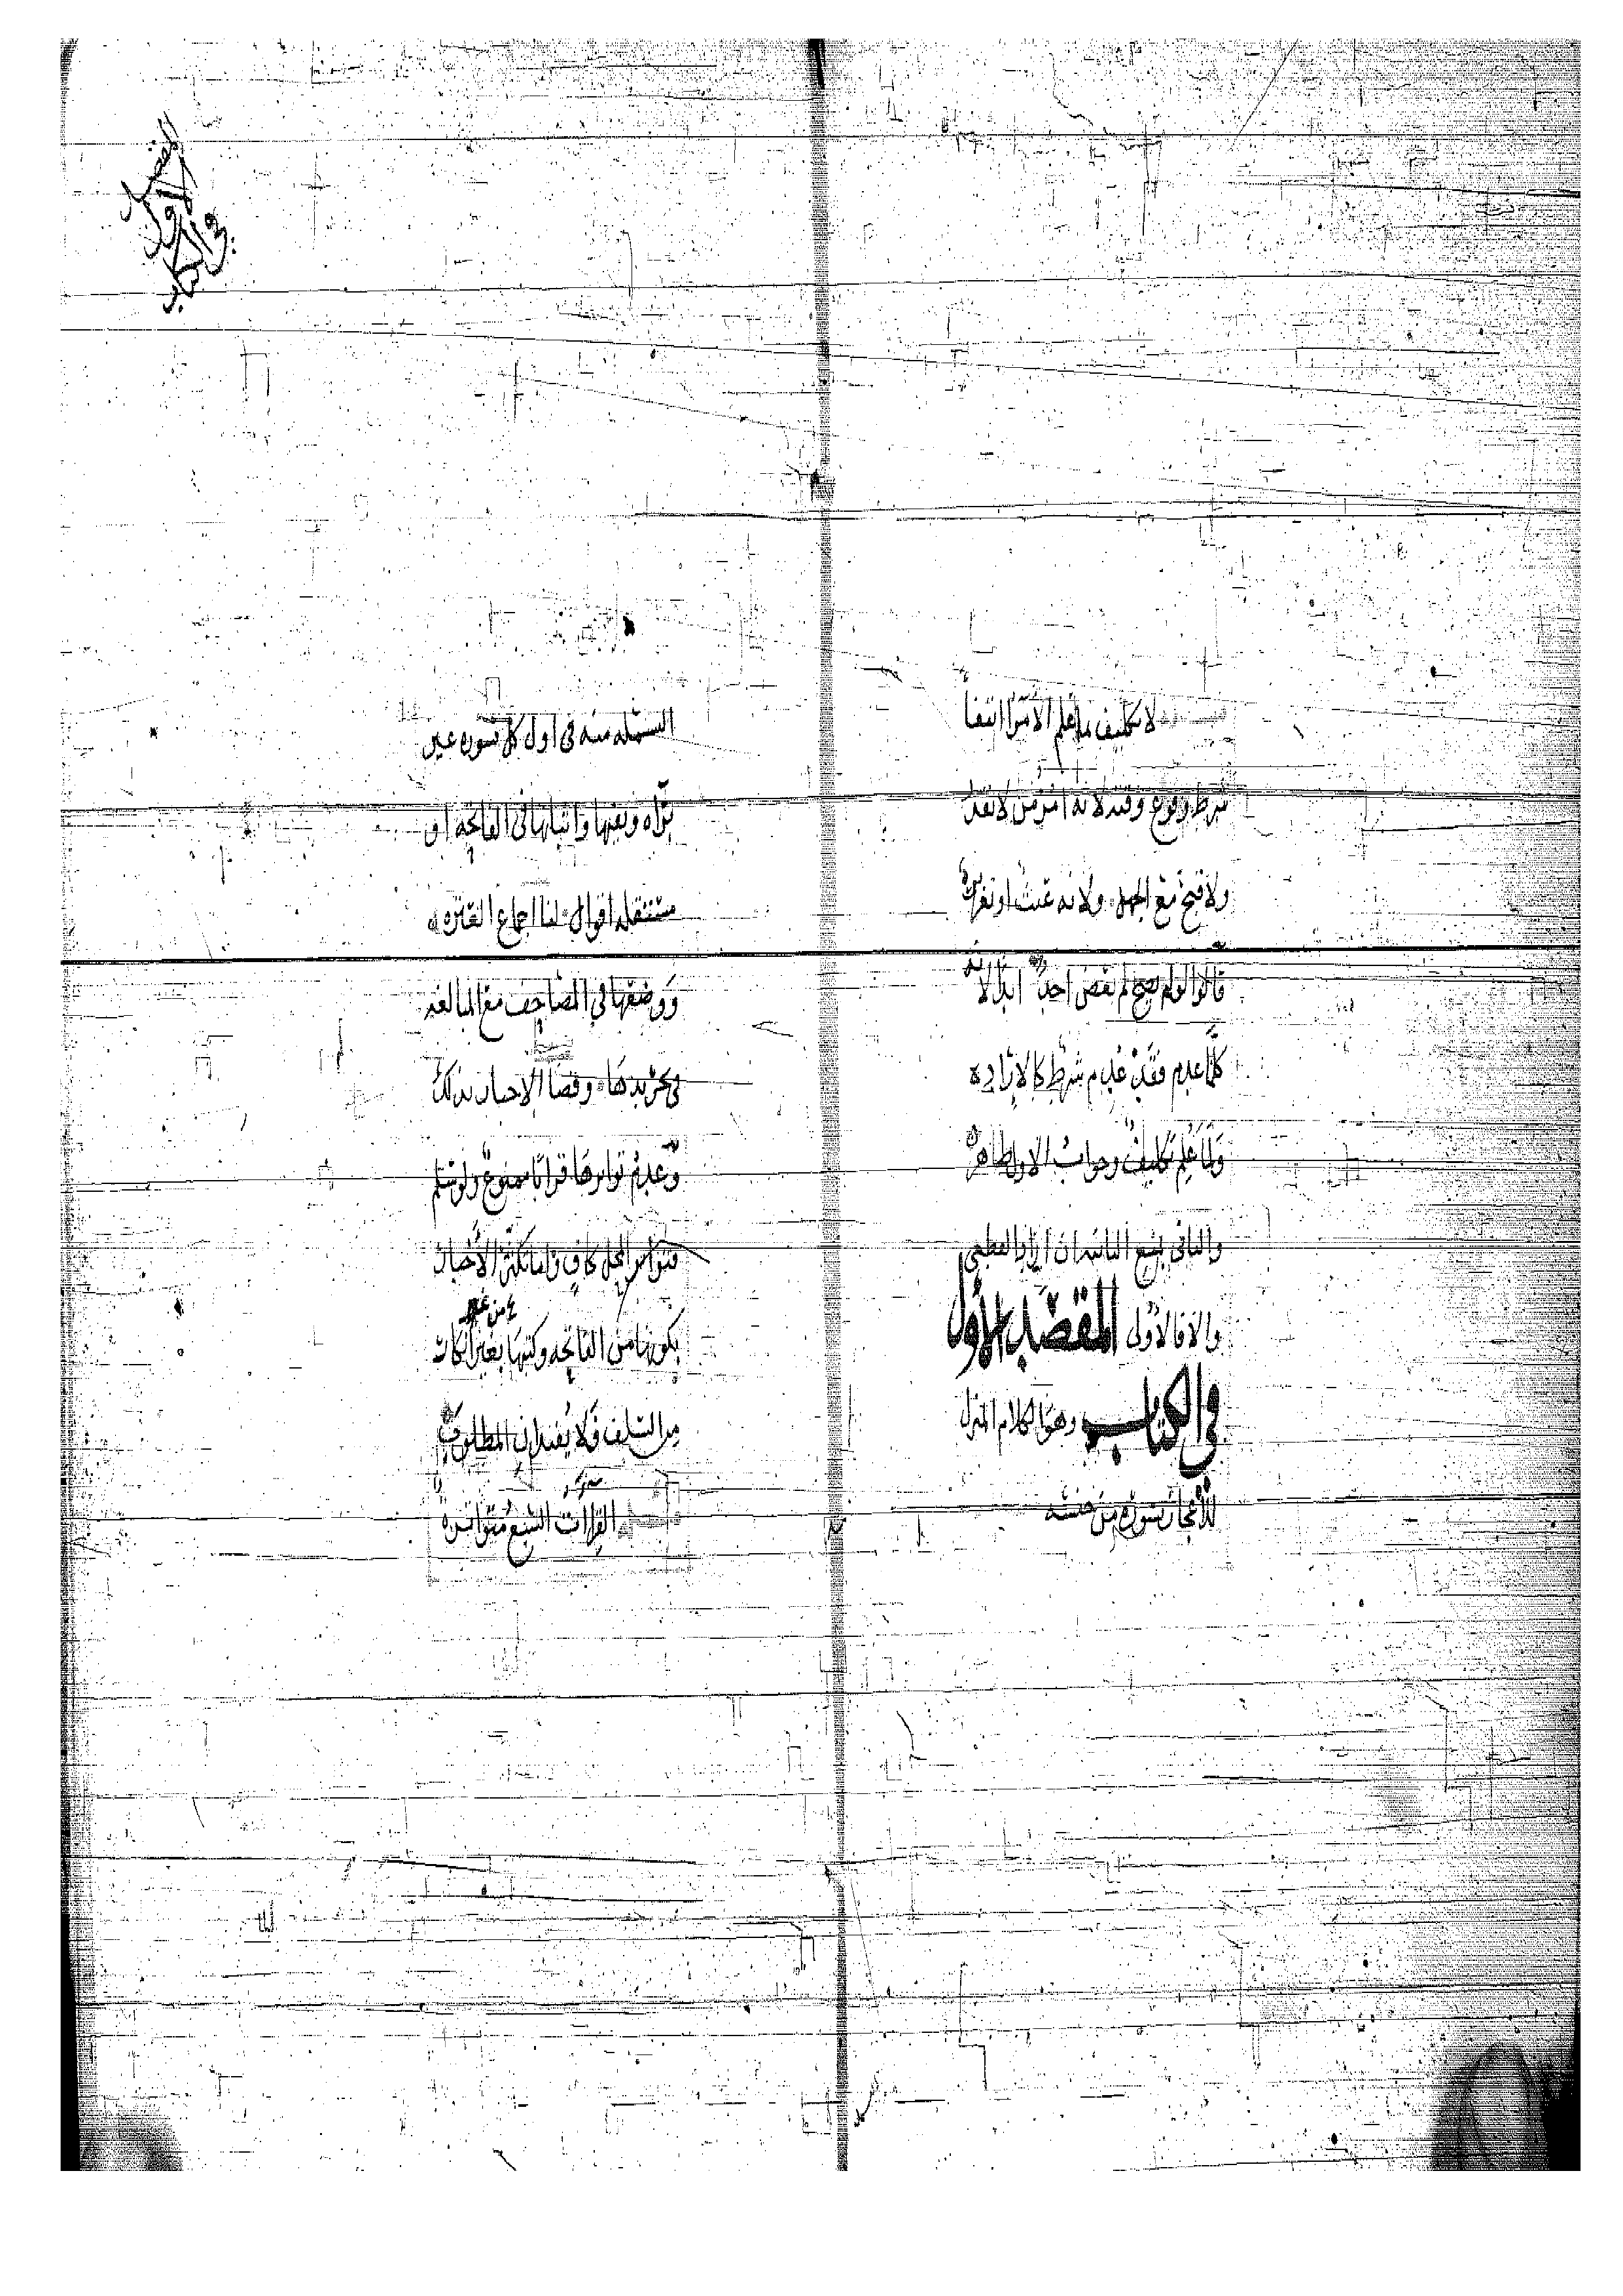 لا تكليف ما علم الآمر انتفا
شرط وقوع وقته لانه امر من لا يقدر
ولا قبح مع الجهل ولانه عبث او تغرير
قالوا لو لم يصح لم يعص احد ابدا لانه
كلما عدم فقد عدم شرط كالاراده
ولما علم تكليف وجواب الاول ظاهر
والثاني يمنع الثانيه ان اريد القطعي
والا فالاولى المقصد الاول
في الكتاب وهو الكلام المنزل
للاعجاز بسوره من جنسه
المقصد
الاول
في الكتاب
البسمله منه في اول كل سوره غير
براه ونفيها واثباتها في الفاتحه او
مستقله اقوال لنا اجماع العتره
ووضعها في المصاحف مع المبالغه
في تجريدها وقضا الاخبار بذلك
وعدم تواترها قرانا ممنوع ولو سلم
فتواتر المحل كاف واما بكثرة الاخبار
بكونها من الفاتحه وكتبها بغير انكار
من غير
من السلف فلا يفيدان المطلوب
القراات السبع متواتره